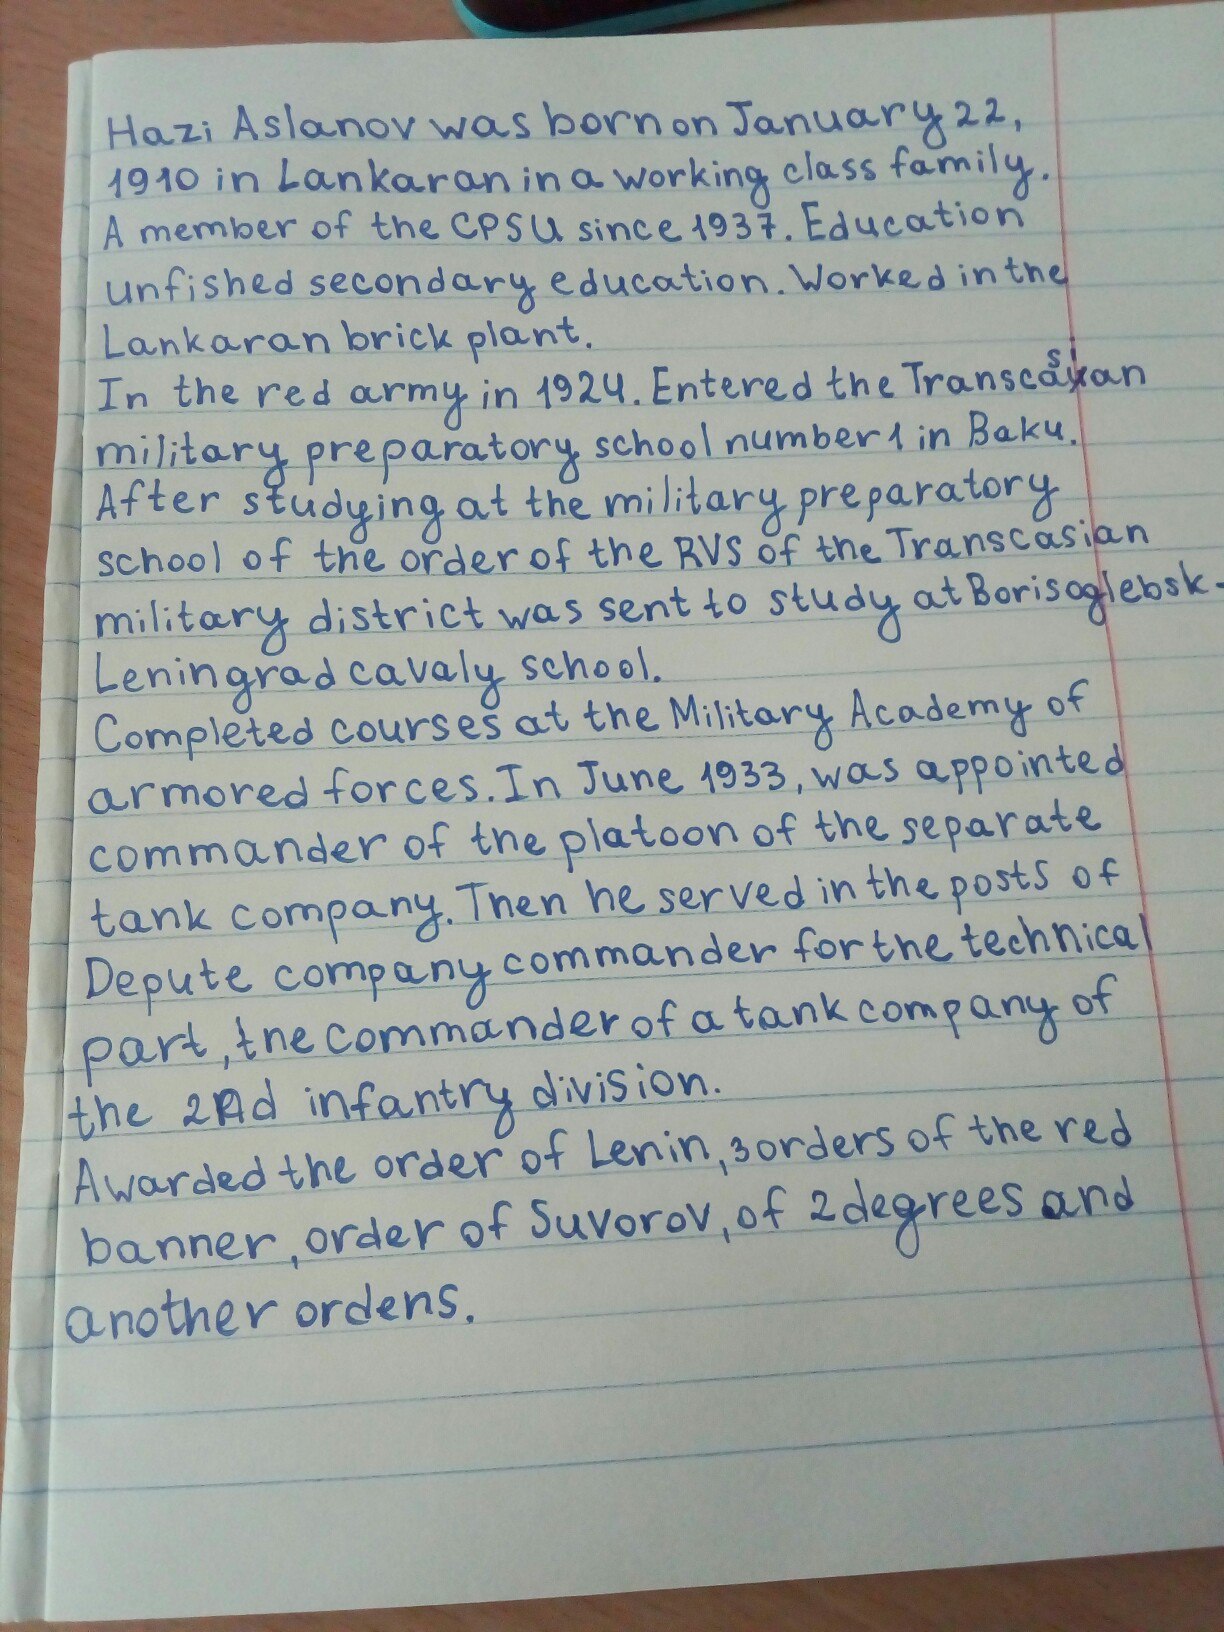 Hazi Aslanov was born on January 22,
1910 in Lankaran in a working class family.
A member of the CPSU since 1937. Education
unfished secondary education. Worked in the
Lankaran brick plant.
In the red army in 1924. Entered the Transcasian
military preparatory school number 1 in Baku.
After studying at the military preparatory
school of the order of the RVS of the Transcasian
military district was sent to study at Borisoglebsk-
Leningrad cavaly school.
Completed courses at the Military Academy of
armored forces. In June 1933, was appointed
commander of the platoon of the separate
tank company. Then he served in the posts of
Depute company commander for the technical
part, the commander of a tank company of
the 2nd infantry division.
Awarded the order of Lenin, 3 orders of the red
banner, order of Suvorov, of 2 degrees and
another ordens.